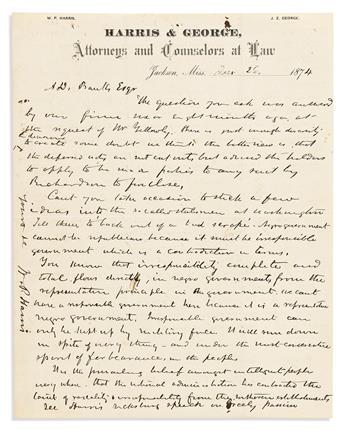 W. P. HARRIS.
J. Z. GEORGE.
HARRIS & GEORGE,
Attorneys and Counselors at Law
Jackson, Miss. Decr 26 1874
A.D. Banks Esqr
The question you ask was answered
by our firm six or eight months ago, at
the request of Mr Yellowly. There is just enough
to create some doubt we think the better view is, that
the deferred notes are not cut outs but advised the holders
to apply to be made parties to any suit by
Richardson to foreclose,
Cant you take occasion to stick a few
ideas into the statesmen at Washington
Tell them to back out of a bad scrape. Negro government
cannot be republican because it must be irresponsible
government which is a contradiction in terms.
You know that irresponsibility complete and
total flows directly, in negro governments from the
representative principle in the government. We cant
have a responsible government here because it is a representative
negro government. Irresponsible government can
only be kept up by military force. It will run down
in spite of every thing — and under the most
spirit of forbearance, in the people.
It is the prevailing belief amongst intelligent people
every where, that the national administration has
of
See Harris' Vicksburg speech
Yours &c W. P. Harris